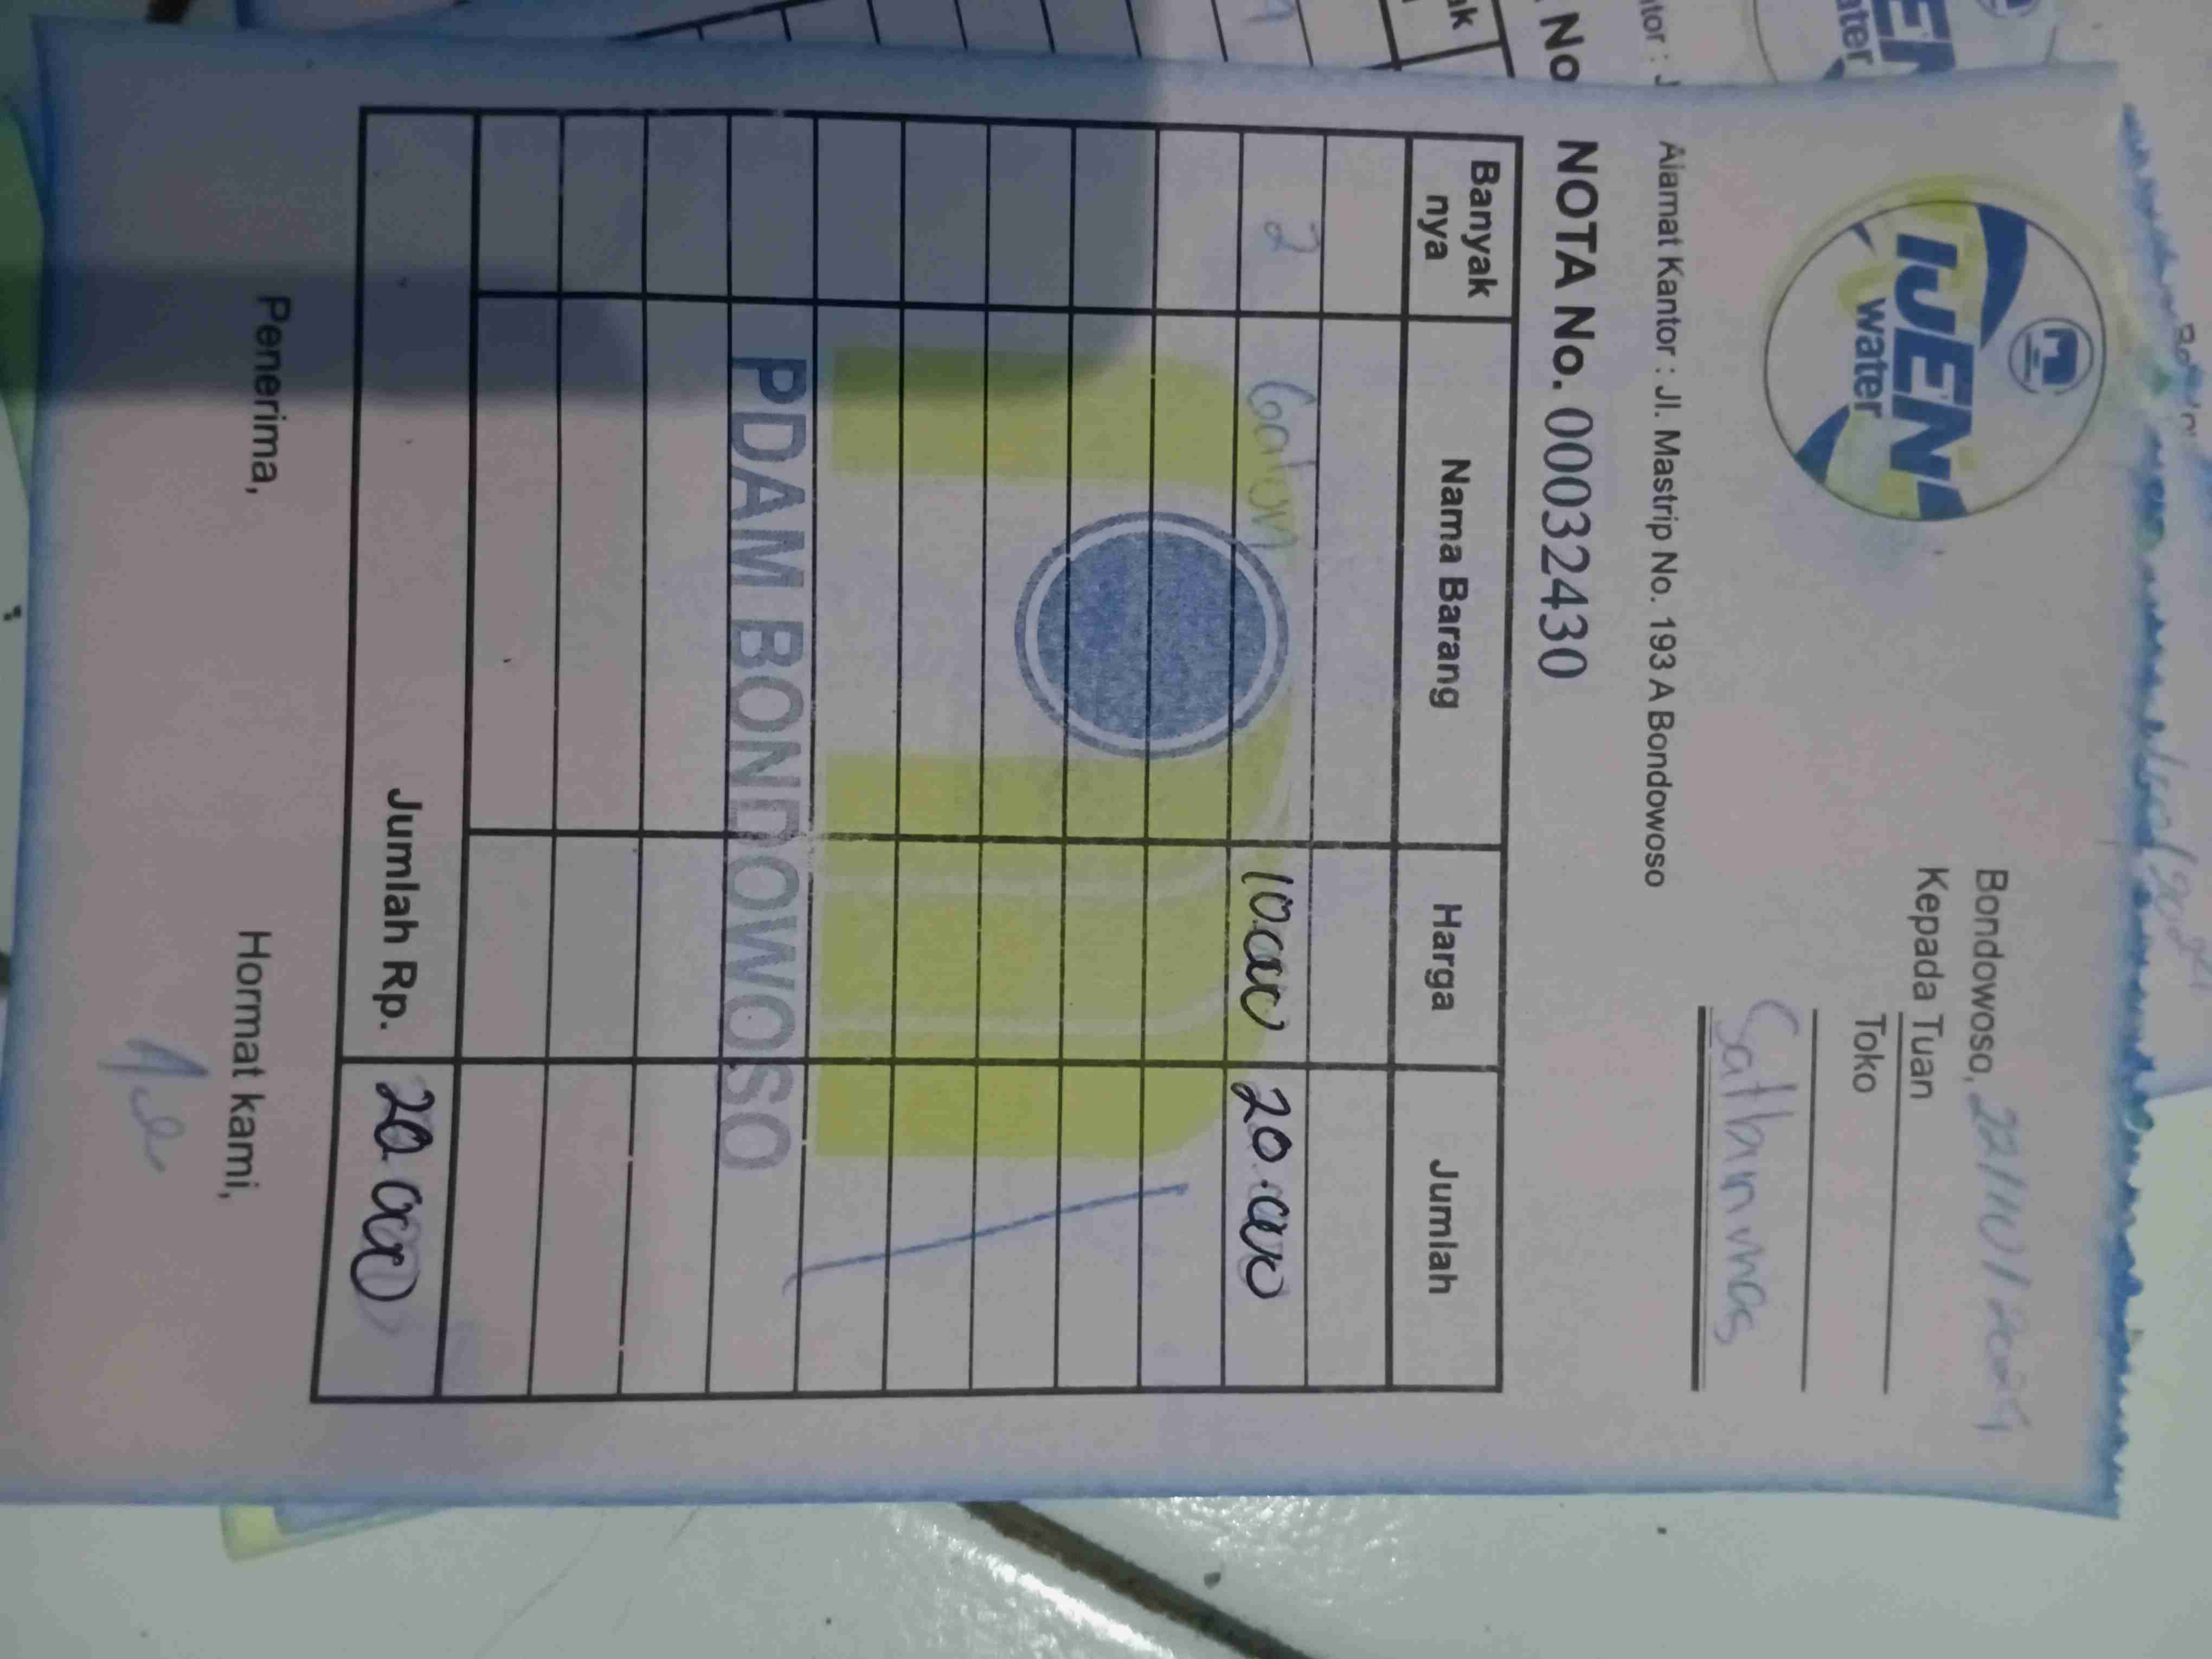 IJEN
water
Bondowoso, 22/10/2024
Kepada Tuan
Toko
Satlinmas
Alamat Kantor : Jl. Mastrip No. 193 A Bondowoso
NOTA No. 00032430
Banyak nya Nama Barang Harga Jumlah
2 Galon 10.000 20.000
PDAM BONDOWOSO
Jumlah Rp. 20.000
Penerima, Hormat kami,
No
ak
ater